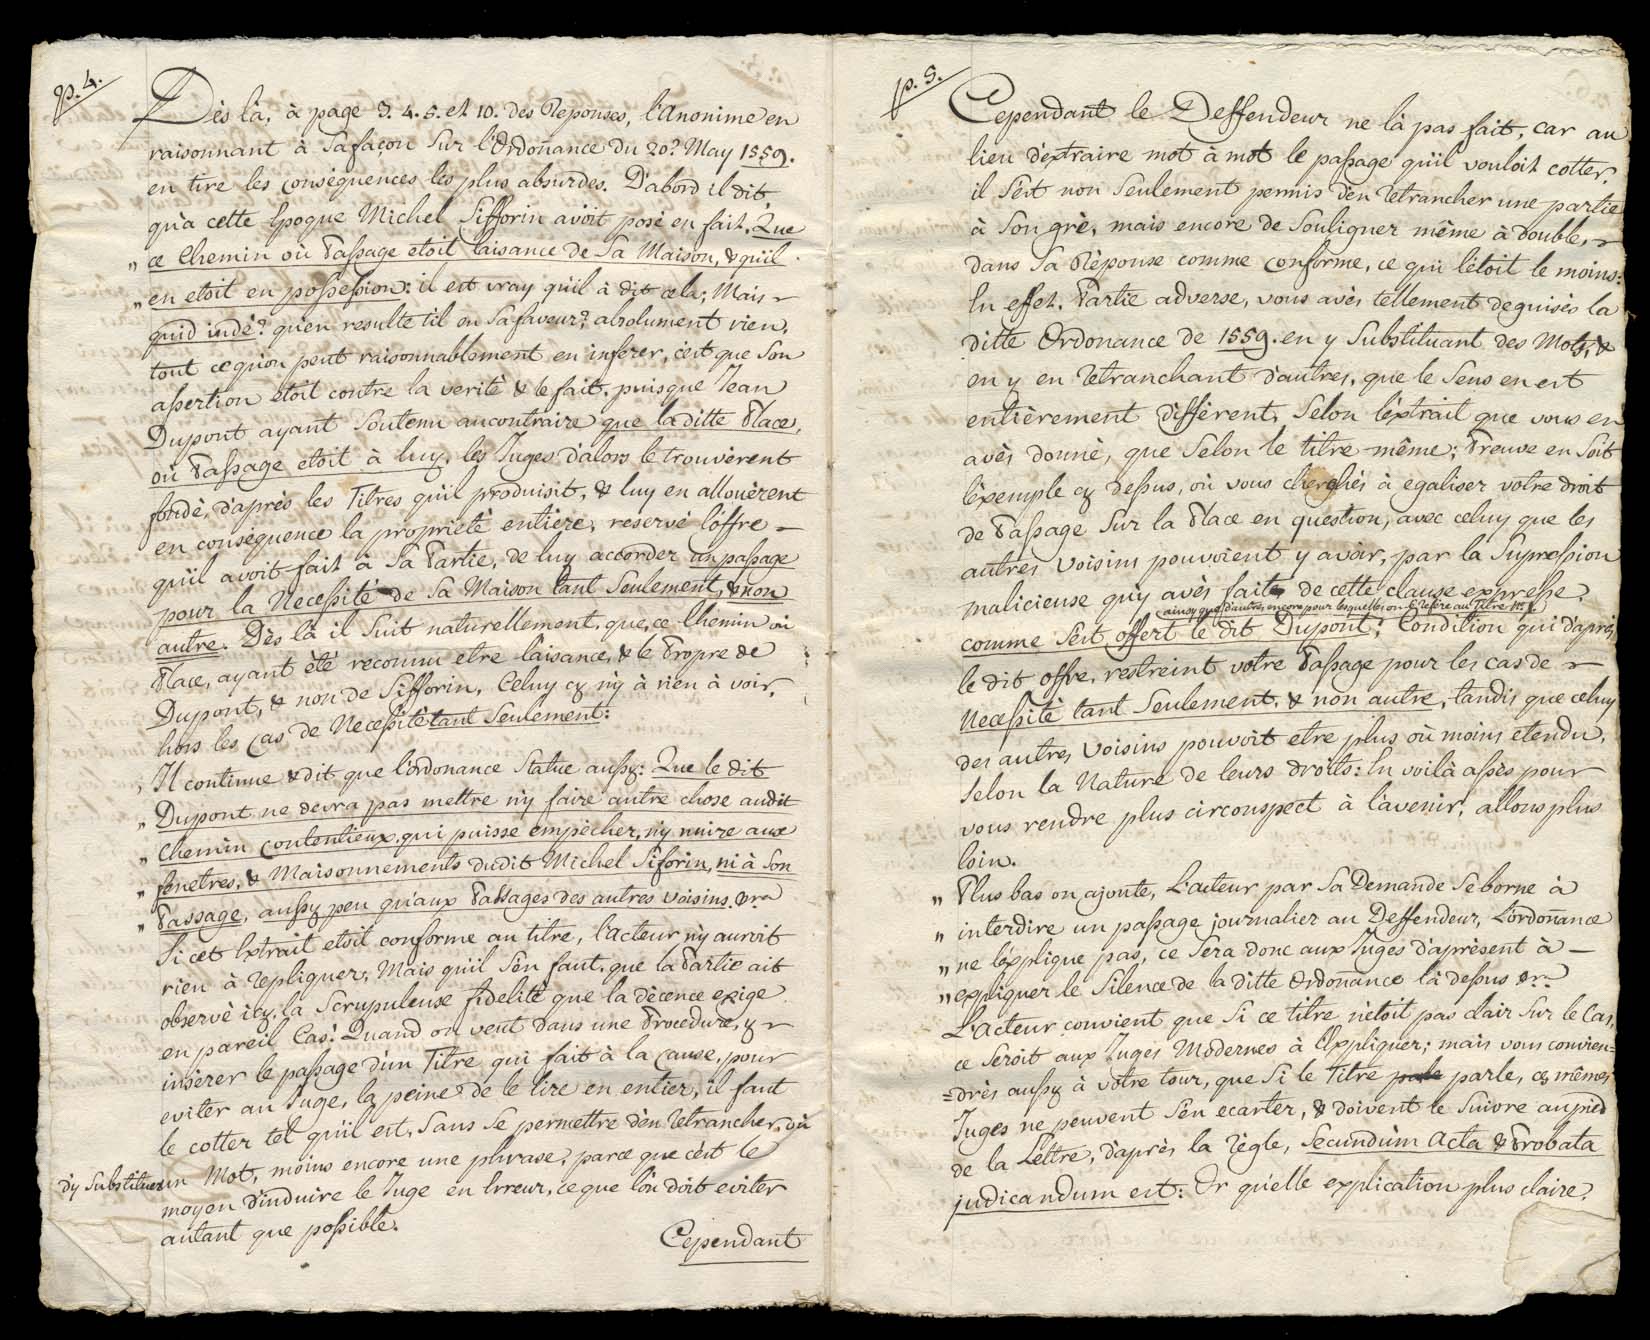 p. 4.
Dès là, à page 3. 4. 5. et 10. des Reponses, l'Anonime en
raisonnant à sa façon sur l'Ordoñance du 20? May 1559.
en tire les conséquences les plus absurdes. D'abord il dit,
qu'à cette Epoque Michel Sifforin avoit posé en fait, Que
„ ce Chemin où Passage etoit l'aisance de sa Maison, & qu'il
„ en etoit en possession: il est vray qu'il à dit cela; Mais
quid indè? qu'en resulte t'il en sa faveur? absolument rien,
tout ce qu'on peut raisonnablement en inferer, c'est que son
assertion etoit contre la verité & le fait, puisque Jean
Dupont ayant soutenu au contraire que la ditte Place,
où Passage etoit à luy, les Juges d'alors le trouvèrent
fondé, d'après les Titres qu'il produisit, & luy en allouèrent
en conséquence la propriété entiere, reservé l'offre
qu'il avoit fait à sa Partie, de luy accorder un passage
pour la Necessité de sa Maison tant seulement, & non
autre. Dès là il suit naturellement, que, ce Chemin où
Place, ayant été reconnu etre l'aisance, & le Propre de
Dupont, & non de Sifforin, Celuy cy n'y à rien à voir,
hors les Cas de Necessité tant seulement:
„ Il continue & dit que l'ordonance statue aussy: Que le dit
„ Dupont ne devra pas mettre n'y faire autre chose audit
„ Chemin contentieux, qui puisse empêcher, n'y nuire aux
„ fenetres, & Maisonnements dudit Michel Siforin, ni à son
„ Passage, aussy peu qu'aux Passages des autres voisins. &ra
Si cet Extrait etoit conforme au titre, l'acteur n'y auroit
rien à repliquer; Mais qu'il s'en faut, que la Partie ait
observé icy, la Scrupuleuse fidelité que la décence exige
en pareil Cas! Quand on veut dans une Procedure, y
insèrer le passage d'un Titre qui fait à la cause, pour
eviter au Juge, la peine de le lire en entier, il faut
le cotter tel qu'il est, sans se permettre d'en retrancher, où
d'y substituer un Mot, moins encore une phrase, parce que c'est le
moyen d'induire le Juge en Erreur, ce que l'on doit eviter
autant que possible.
Cependant
p. 5.
Cependant le Deffendeur ne l'à pas fait, car au
lieu d'extraire mot à mot le passage qu'il vouloit cotter,
il s'est non seulement permis d'en retrancher une partie
à son gré, mais encore de souligner même à double,
dans sa Réponse comme conforme, ce qui l'etoit le moins:
En effet, Partie adverse, vous avés tellement deguisés la
ditte Ordonance de 1559. en y substituant des Mots, &
en y en retranchant d'autres, que le sens en est
entièrement différent, selon l'extrait que vous en
avés donné, que selon le titre même; Preuve en soit
l'exemple cy dessus, où vous cherchés à egaliser votre droit
de Passage sur la Place en question, avec celuy que les
autres voisins pouvoient y avoir, par la Supression
malicieuse qu'y avés faite de cette clause expresse,
ainsy que d'autres encore pour lesquelles on se refère au Titre
comme s'est offert le dit Dupont; Condition qui d'après
le dit offre, restreint votre Passage pour les cas de
Necessité tant seulement, & non autre, tandis que celuy
des autres Voisins pouvoit etre plus où moins etendu,
selon la Nature de leurs droits: En voilà assés pour
vous rendre plus circonspect à l'avenir, allons plus
loin.
„ Plus bas on ajoute, L'acteur par sa Demande se borne à
„ interdire un passage journalier au Deffendeur, L'ordoñance
„ ne l'explique pas, ce sera donc aux Juges d'apresent à
„ expliquer le silence de la ditte Ordonance là dessus &ra
L'Acteur convient que si ce titre n'etoit pas clair sur le Cas,
ce seroit aux Juges Modernes à l'Expliquer; mais vous convien=
=drés aussy à votre tour, que si le Titre parle, ces mêmes
Juges ne peuvent s'en ecarter, & doivent le suivre au pied
de la Lettre, d'après la Règle, Secundùm Acta & Probata
judicandum est: Or qu'elle explication plus claire,